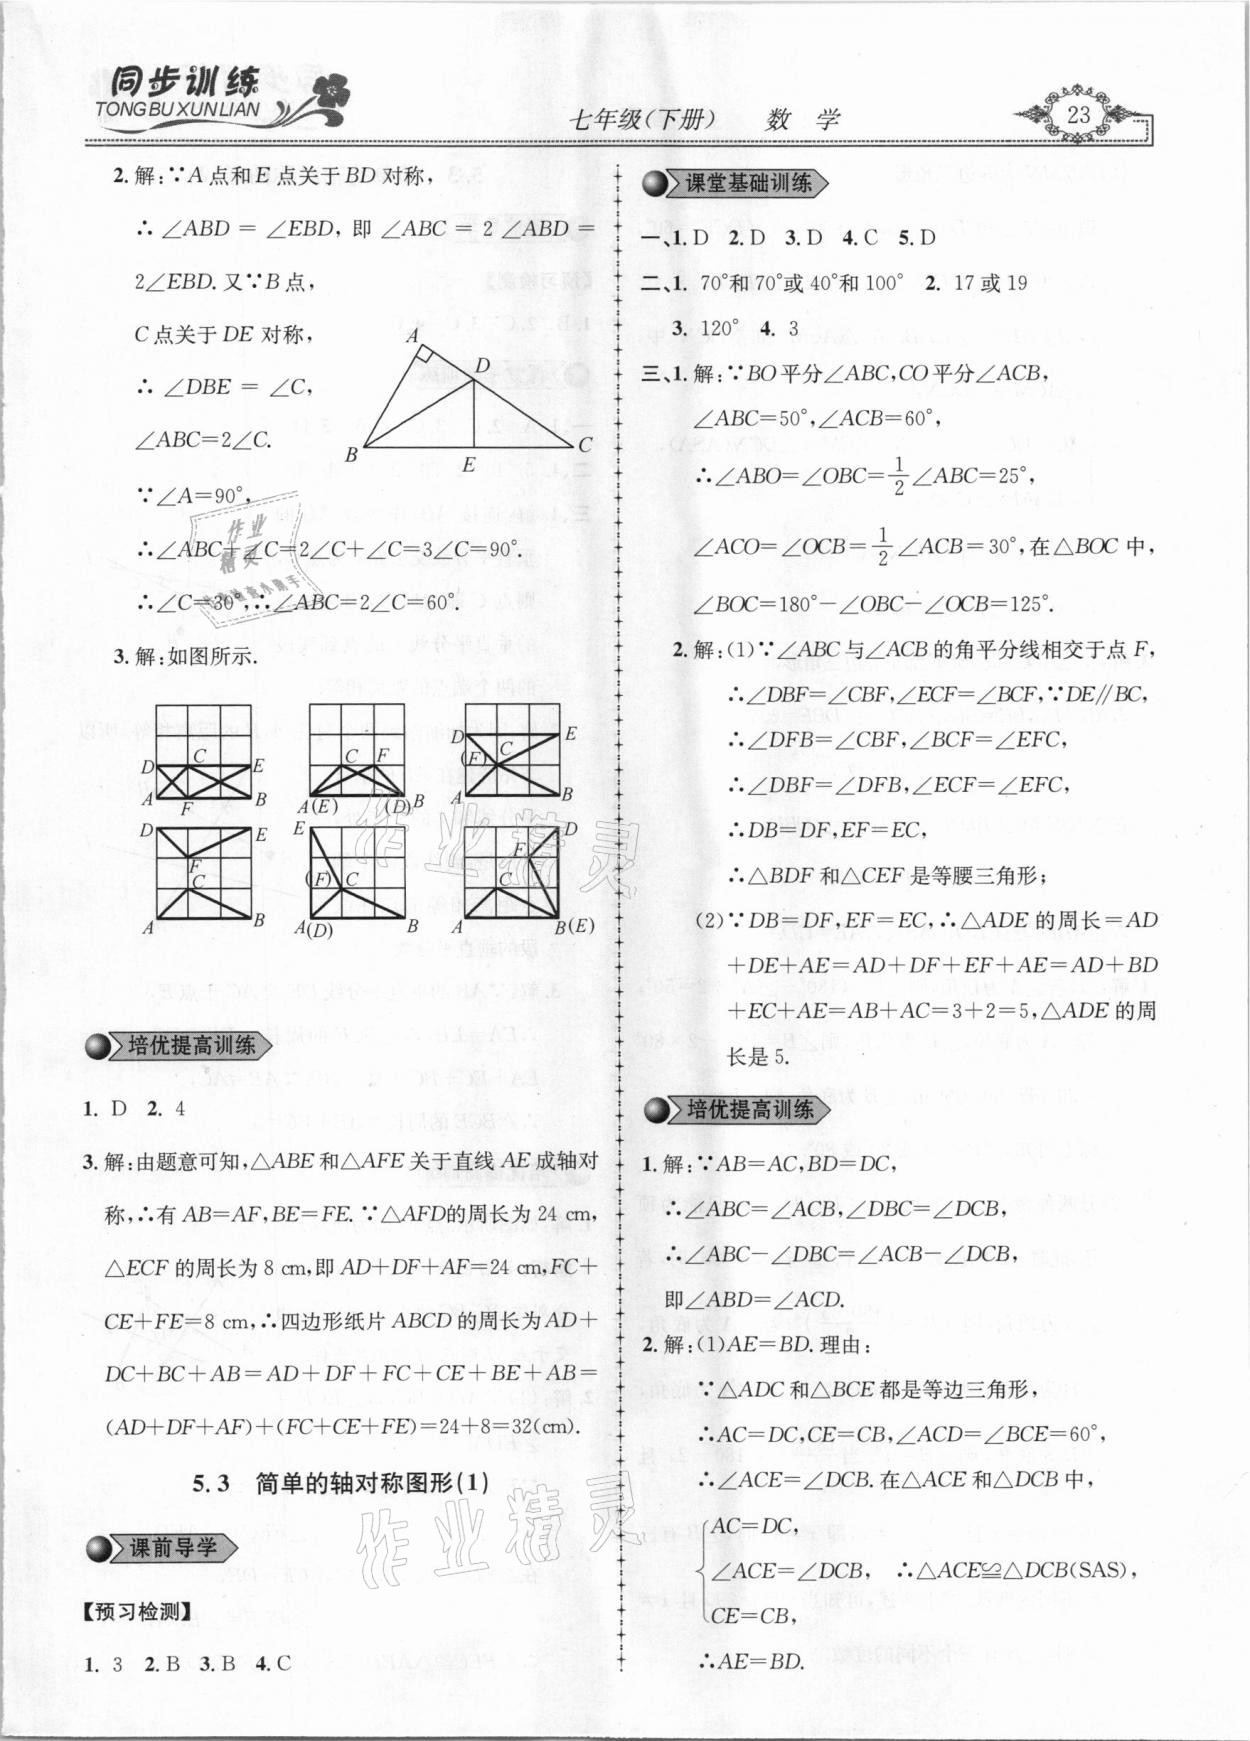 同步训练
TONG BU XUN LIAN
七年级(下册) 数 学
23
2. 解:∵A点和E点关于BD对称,
∴∠ABD=∠EBD,即∠ABC=2∠ABD=
2∠EBD.又∵B点,
C点关于DE对称,
∴∠DBE=∠C,
∠ABC=2∠C.
∵∠A=90°,
∴∠ABC+∠C=2∠C+∠C=3∠C=90°.
∴∠C=30°,∴∠ABC=2∠C=60°.
A
D
B
E
C
3. 解:如图所示.
D C E
A F B
C F
A(E) (D)B
D E
(F) C
A B
D E
F
C
A B
E
(F) C
A(D) B
D
F
C
A B(E)
培优提高训练
1. D 2. 4
3. 解:由题意可知,△ABE和△AFE关于直线AE成轴对
称,∴有AB=AF,BE=FE.∵△AFD的周长为24 cm,
△ECF的周长为8 cm,即AD+DF+AF=24 cm,FC+
CE+FE=8 cm,∴四边形纸片ABCD的周长为AD+
DC+BC+AB=AD+DF+FC+CE+BE+AB=
(AD+DF+AF)+(FC+CE+FE)=24+8=32(cm).
5.3 简单的轴对称图形(1)
课前导学
【预习检测】
1. 3 2. B 3. B 4. C
课堂基础训练
一、1. D 2. D 3. D 4. C 5. D
二、1. 70°和70°或40°和100° 2. 17或19
3. 120° 4. 3
三、1. 解:∵BO平分∠ABC,CO平分∠ACB,
∠ABC=50°,∠ACB=60°,
∴∠ABO=∠OBC=1/2∠ABC=25°,
∠ACO=∠OCB=1/2∠ACB=30°,在△BOC中,
∠BOC=180°-∠OBC-∠OCB=125°.
2. 解:(1)∵∠ABC与∠ACB的角平分线相交于点F,
∴∠DBF=∠CBF,∠ECF=∠BCF,∵DE∥BC,
∴∠DFB=∠CBF,∠BCF=∠EFC,
∴∠DBF=∠DFB,∠ECF=∠EFC,
∴DB=DF,EF=EC,
∴△BDF和△CEF是等腰三角形;
(2)∵DB=DF,EF=EC,∴△ADE的周长=AD
+DE+AE=AD+DF+EF+AE=AD+BD
+EC+AE=AB+AC=3+2=5,△ADE的周
长是5.
培优提高训练
1. 解:∵AB=AC,BD=DC,
∴∠ABC=∠ACB,∠DBC=∠DCB,
∴∠ABC-∠DBC=∠ACB-∠DCB,
即∠ABD=∠ACD.
2. 解:(1)AE=BD.理由:
∵△ADC和△BCE都是等边三角形,
∴AC=DC,CE=CB,∠ACD=∠BCE=60°,
∴∠ACE=∠DCB.在△ACE和△DCB中,
AC=DC,
∠ACE=∠DCB, ∴△ACE≌△DCB(SAS),
CE=CB,
∴AE=BD.
作业精灵
作业精灵
作业
精灵